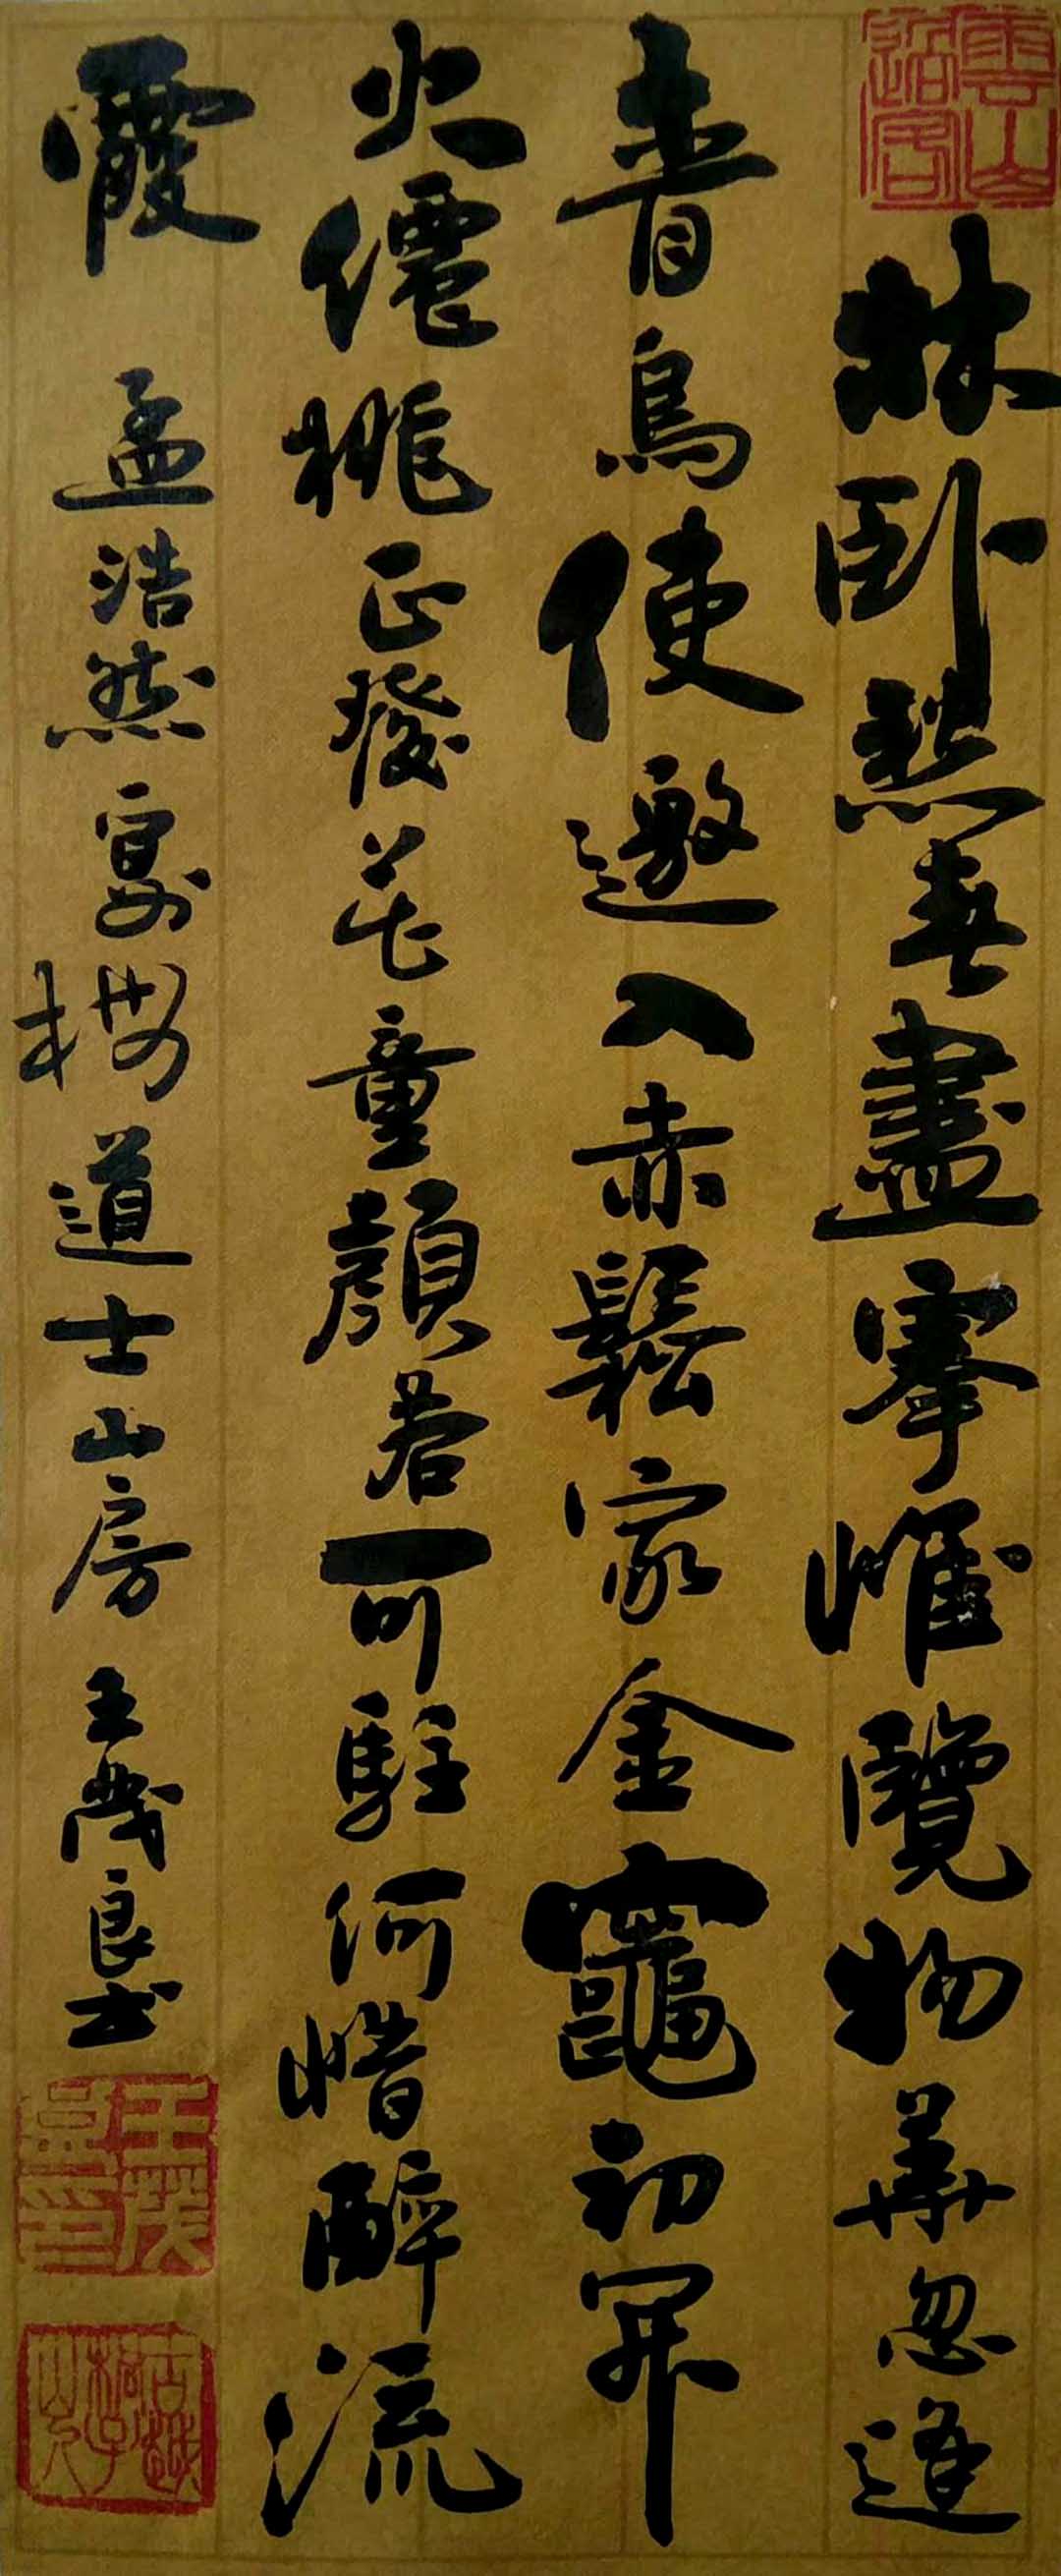 林臥愁春盡搴帷覽物華忽逢
青鳥使邀入赤鬆家金竈初開
火僊桃正發花童顏若可駐何惜醉流
霞 孟浩然宴梅道士山房 王茂良书
王茂良印